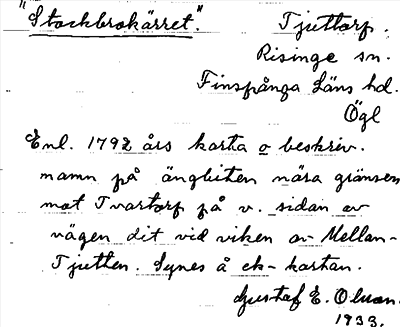 "Stockbrokärret".
Tjuttorp.
Risinge sn.
Finspånga Läns hd.
Ögl
Enl. 1792 års karta o beskriv.
namn på ängbiten nära gränsen
mot Tvartorp på v. sidan av
vägen dit vid viken av Mellan-
Tjutten. Synes å ek-kartan.
Gustaf E. Olsson.
1933.